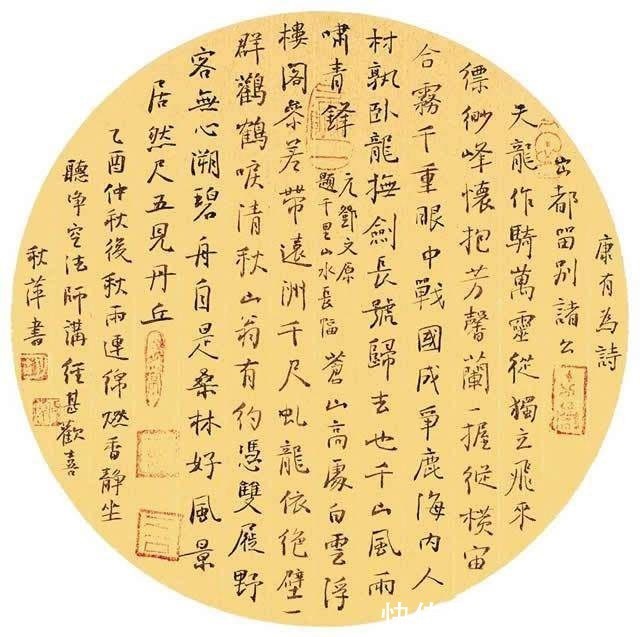 康有為詩
出都留别諸公
天龍作騎萬靈從獨立飛來
縹緲峰懷抱芳馨蘭一握縱橫宙
合霧千重眼中戰國成爭鹿海内人
材孰卧龍撫劍長號歸去也千山風雨
嘯青鋒
元鄧文原
題千里山水長幅
蒼山高處白雲浮
樓閣參差帶遠洲千尺虬龍依絶壁一
群鸛鶴唳清秋山翁有約憑雙屐野
客無心溯碧舟自是桑林好風景
居然尺五見丹丘
乙酉仲秋後秋雨連綿燃香靜坐
聽净空法師講經甚歡喜
秋萍書